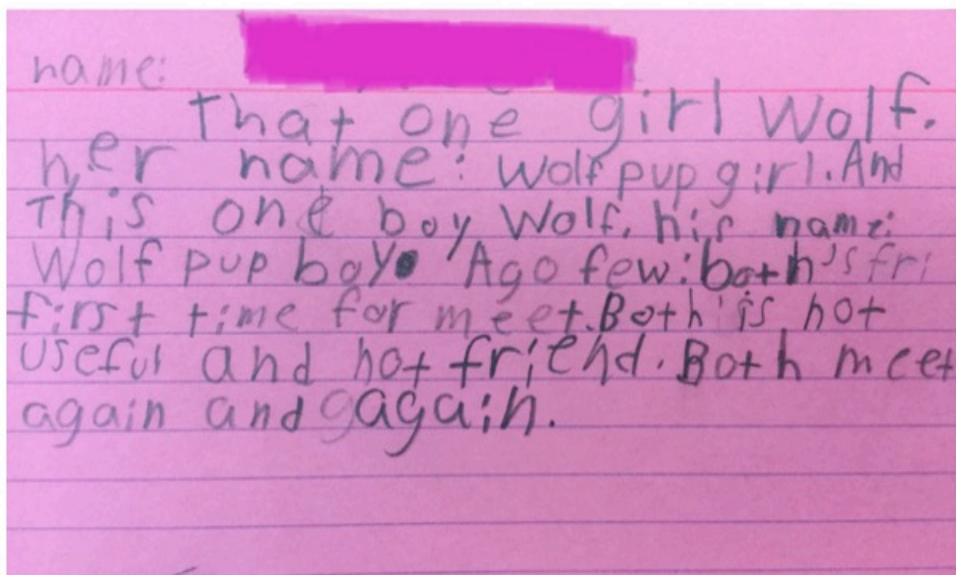 name:
That one girl Wolf.
her name: Wolf pup girl. And
This one boy Wolf. his name:
Wolf pup boy. Ago few: both's fri
first time for meet. Both is not
useful and not friend. Both meet
again and gagain.